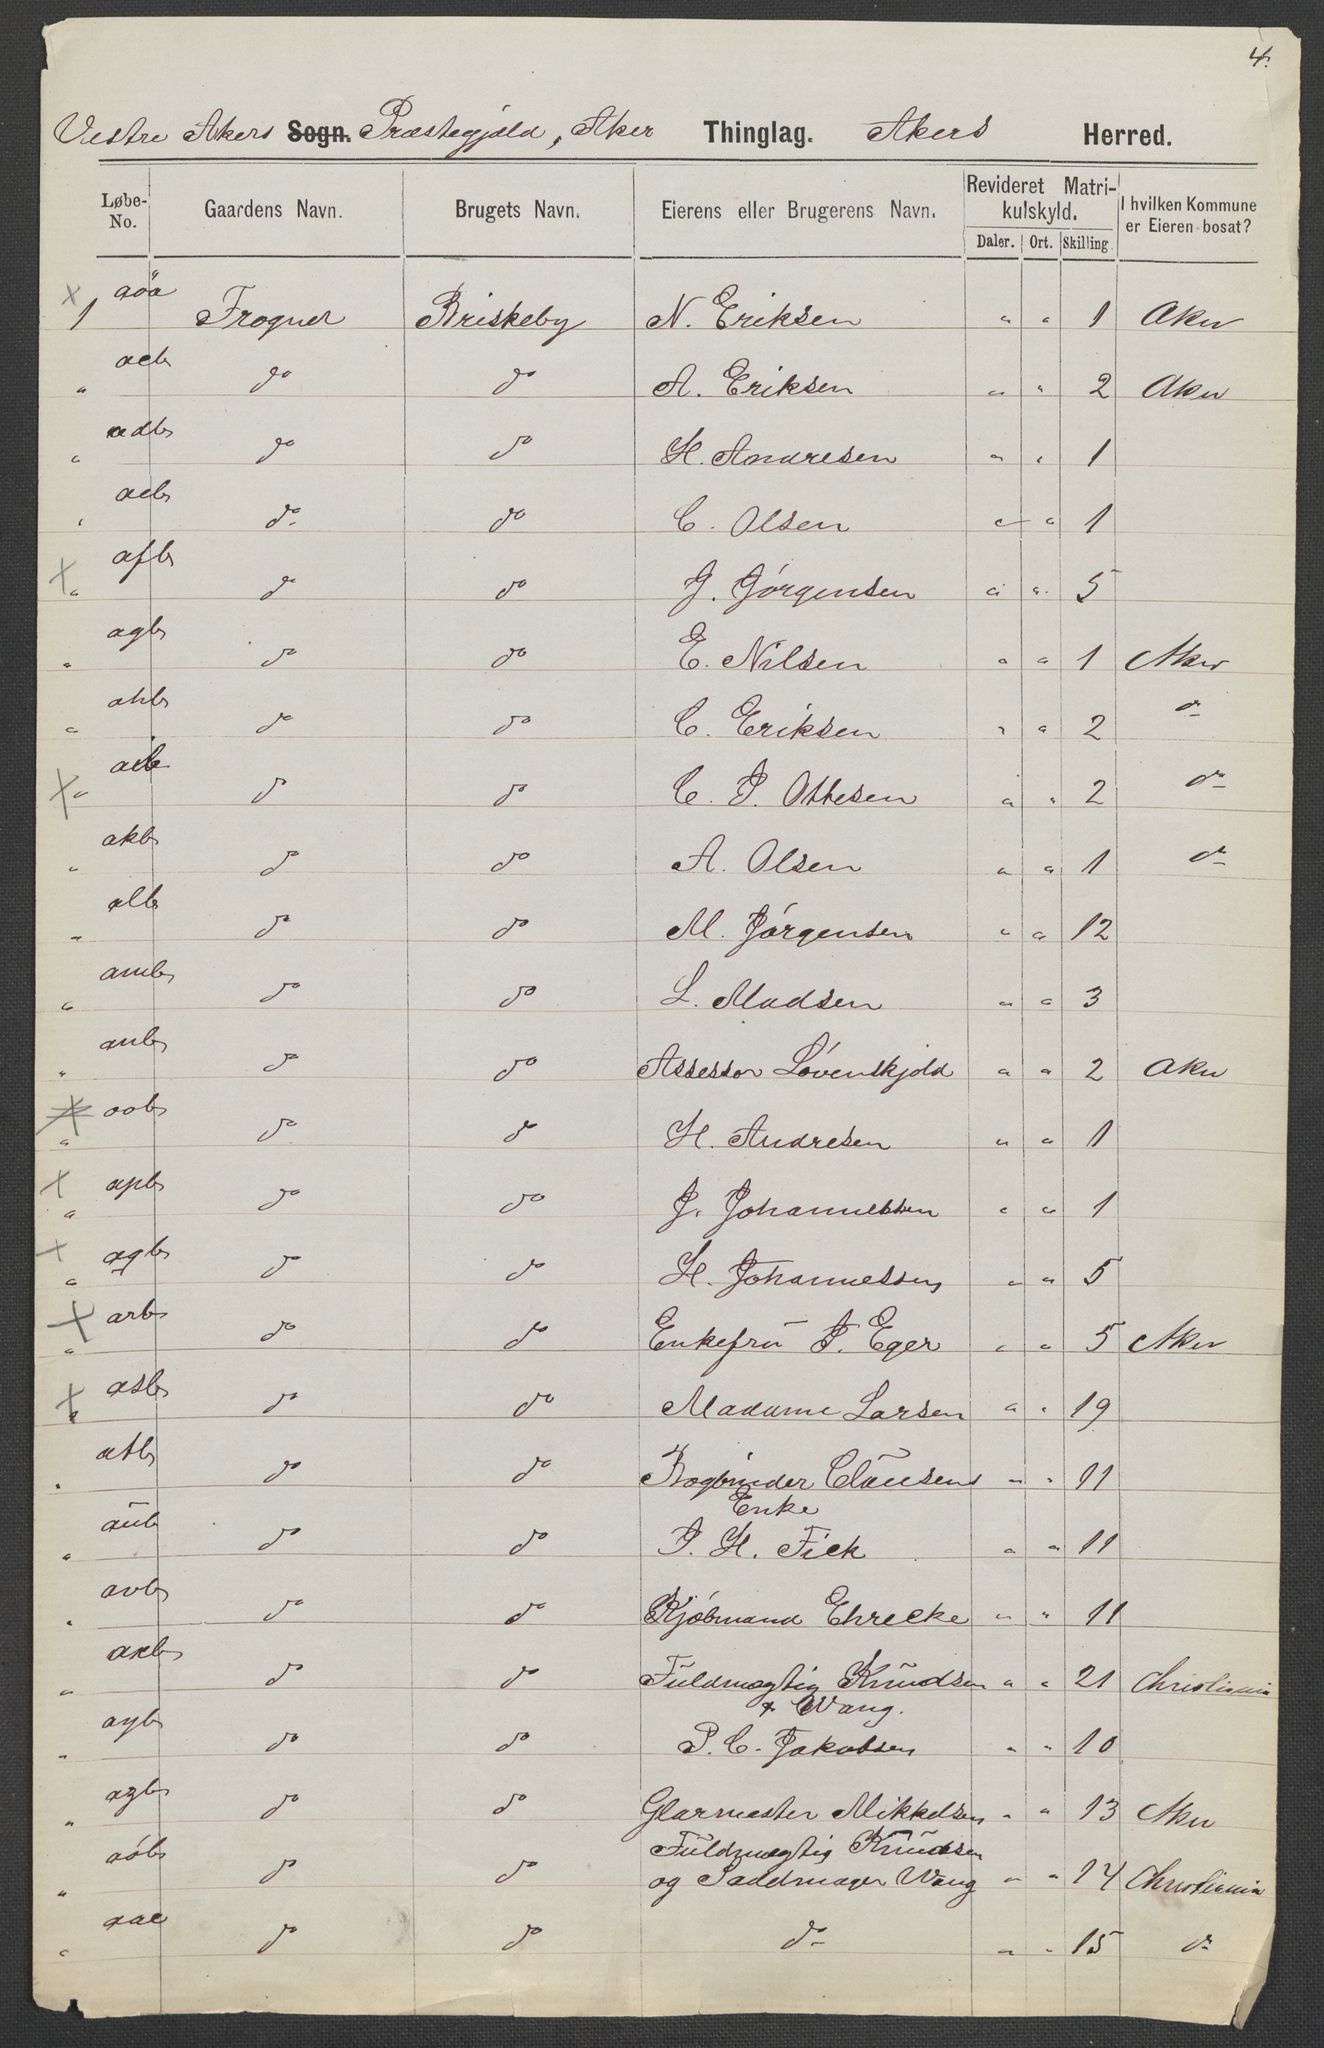 4.
Vestre Akers Sogn. Præstegjæld, Aker Thinglag. Akers Herred.
Løbe-No. Gaardens Navn. Brugets Navn. Eierens eller Brugerens Navn. Revideret Matrikulskyld. I hvilken Kommune er Eieren bosat?
Daler. Ort. Skilling
x 1 aöa Frogner Briskeby N. Eriksen " " 1 Aker
" acb do do A. Eriksen " " 2 Aker
" adb do do H. Andresen " " 1
" aeb do do C. Olsen " " 1
x " afb do do J. Jörgensen " " 5
" agb do do E. Nilsen " " 1 Aker
" ahb do do C. Eriksen " " 2 do
x " aib do do C. P. Ottesen " " 2 do
" akb do do A. Olsen " " 1 do
" alb do do M. Jörgensen " " 12
" amb do do L. Madsen " " 3
" anb do do Assessor Lövenskjold " " 2 Aker
x " aob do do H. Andresen " " 1
x " apb do do J. Johannessen " " 1
x " aqb do do H. Johannessen " " 5
x " arb do do Enkefru P. Eger " " 5 Aker
x " asb do do Madame Larsen " " 19
" atb do do Bogbinder Clausens " " 11
Enke
" aub do do P. H. Fick " " 11
" avb do do Kjöbmand Ehrecke " " 11
" axb do do Fuldmægtig Knudsen " " 21 Christiania
& Wang.
" ayb do do P. C. Jakobsen " " 10
" azb do do Glarmester Mikkelsen " " 13 Aker
" aöb do do Fuldmægtig Knudsen
og Sadelmager Wang " " 14 Christiania
" aac do do do " " 15 do